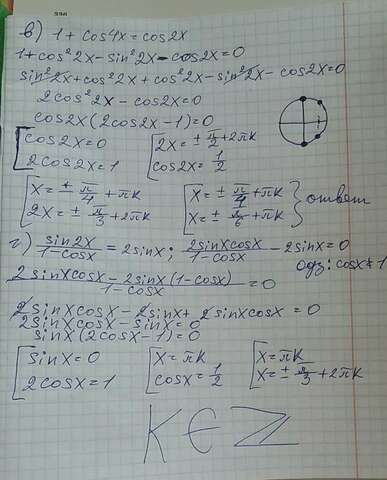 в) 1 + cos4x = cos2x
1 + cos²2x - sin²2x - cos2x = 0
sin²2x + cos²2x + cos²2x - sin²2x - cos2x = 0
2cos²2x - cos2x = 0
cos2x(2cos2x - 1) = 0
[cos2x = 0 [2x = ± π/2 + 2πk
2cos2x = 1 cos2x = 1/2
[x = ± π/4 + πk [x = ± π/4 + πk } ответ
2x = ± π/3 + 2πk x = ± π/6 + πk
г) sin2x/(1-cosx) = 2sinx; 2sinxcosx/(1-cosx) - 2sinx = 0
одз: cosx ≠ 1
(2sinxcosx - 2sinx(1-cosx))/(1-cosx) = 0
2sinxcosx - 2sinx + 2sinxcosx = 0
2sinxcosx - sinx = 0
sinx(2cosx - 1) = 0
[sinx = 0 [x = πk [x = πk
2cosx = 1 cosx = 1/2 x = ± π/3 + 2πk
K ∈ Z